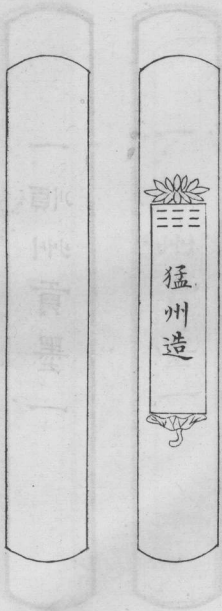 猛州造